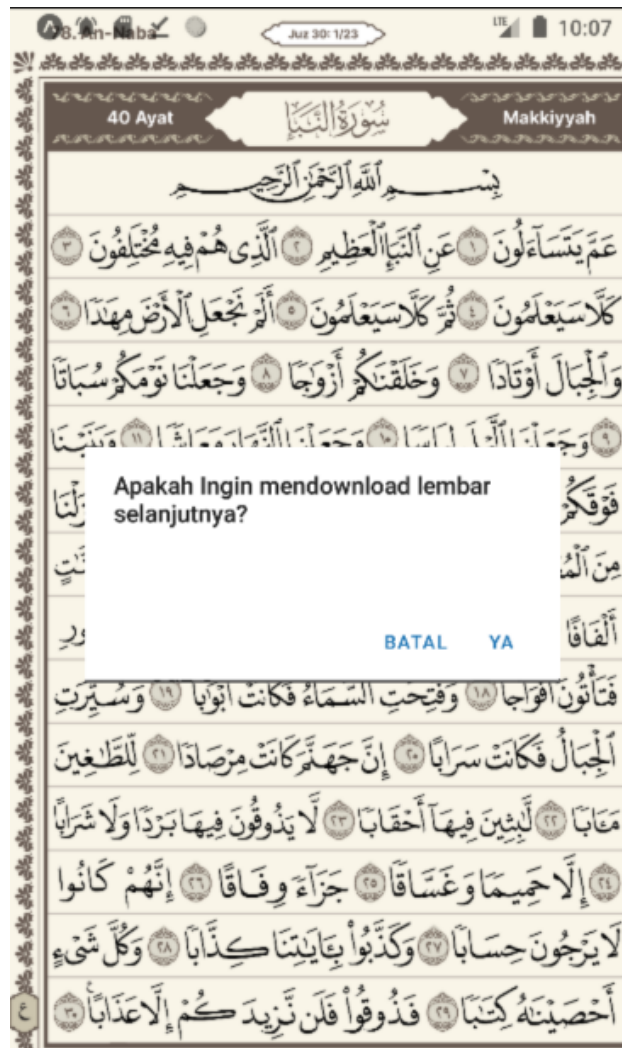 78. An-Naba
Juz 30: 1/23
LTE
10:07
40 Ayat
سُورَةُ النَّبَإِ
Makkiyyah
بِسْمِ ٱللَّهِ ٱلرَّحْمَٰنِ ٱلرَّحِيمِ
عَمَّ يَتَسَآءَلُونَ ١ عَنِ ٱلنَّبَإِ ٱلْعَظِيمِ ٢ ٱلَّذِى هُمْ فِيهِ مُخْتَلِفُونَ ٣
كَلَّا سَيَعْلَمُونَ ٤ ثُمَّ كَلَّا سَيَعْلَمُونَ ٥ أَلَمْ نَجْعَلِ ٱلْأَرْضَ مِهَٰدًا ٦
وَٱلْجِبَالَ أَوْتَادًا ٧ وَخَلَقْنَٰكُمْ أَزْوَٰجًا ٨ وَجَعَلْنَا نَوْمَكُمْ سُبَاتًا
٩ وَجَعَلْنَا ٱلَّيْلَ لِبَاسًا ١٠ وَجَعَلْنَا ٱلنَّهَارَ مَعَاشًا ١١ وَبَنَيْنَا
فَوْقَكُمْ
مِنَ
أَلْفَافًا
Apakah Ingin mendownload lembar
selanjutnya?
BATAL YA
فَتَأْتُونَ أَفْوَاجًا ١٨ وَفُتِحَتِ ٱلسَّمَآءُ فَكَانَتْ أَبْوَٰبًا ١٩ وَسُيِّرَتِ
ٱلْجِبَالُ فَكَانَتْ سَرَابًا ٢٠ إِنَّ جَهَنَّمَ كَانَتْ مِرْصَادًا ٢١ لِّلطَّٰغِينَ
مَـَٔابًا ٢٢ لَّٰبِثِينَ فِيهَآ أَحْقَابًا ٢٣ لَّا يَذُوقُونَ فِيهَا بَرْدًا وَلَا شَرَابًا
٢٤ إِلَّا حَمِيمًا وَغَسَّاقًا ٢٥ جَزَآءً وِفَاقًا ٢٦ إِنَّهُمْ كَانُوا۟
لَا يَرْجُونَ حِسَابًا ٢٧ وَكَذَّبُوا۟ بِـَٔايَٰتِنَا كِذَّابًا ٢٨ وَكُلَّ شَىْءٍ
أَحْصَيْنَٰهُ كِتَٰبًا ٢٩ فَذُوقُوا۟ فَلَن نَّزِيدَكُمْ إِلَّا عَذَابًا ٣٠
ع